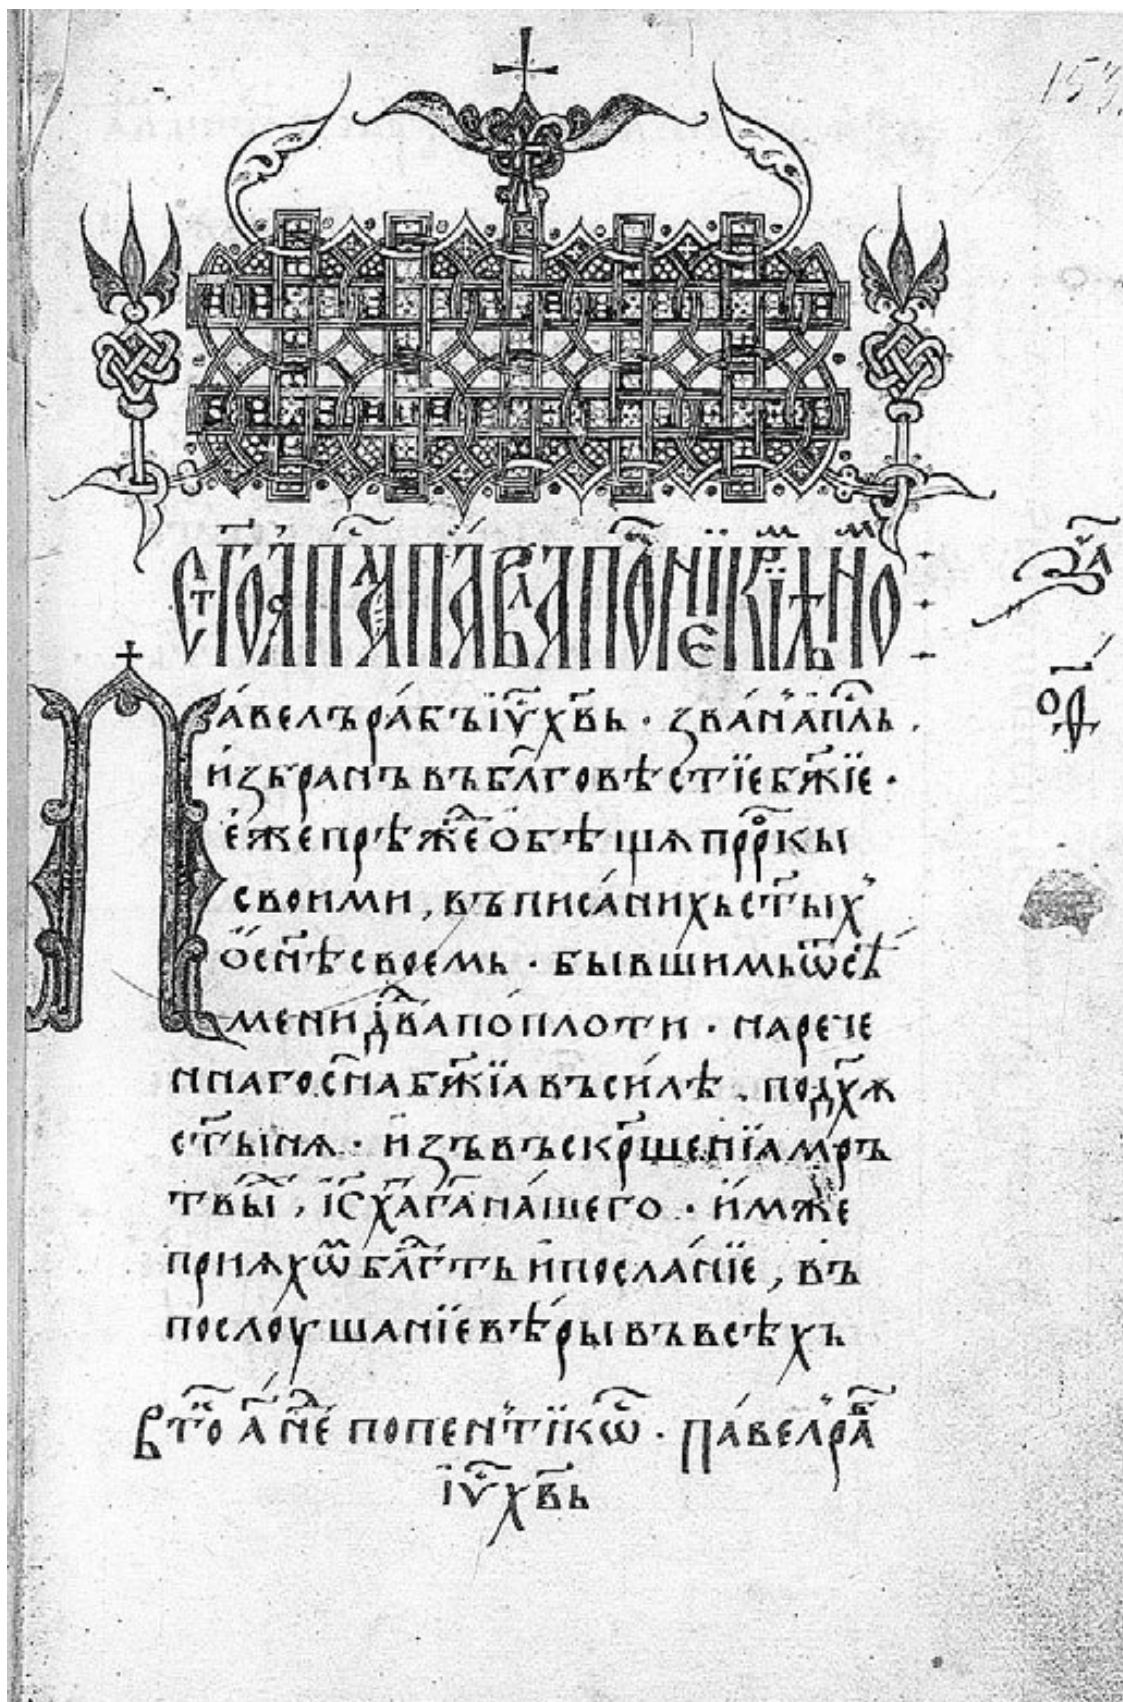 павелъ рабъ іѵ҃ хв҃ь · зван̾ ап҃лъ ·
избранъ въ бл҃говѣстїе бж҃їе ·
еже прѣж҃е обѣщѧ пррⷪ҇кы
своими, въ писаних ст҃ых̾
ѡ сн҃ѣ своемь · бывшимь ѿ сѣ
мени дв҃да по плоти · нарече
ннаго сн҃а бж҃їа въ силѣ · по дх҃ѫ
ст҃ынѧ · изъ въскрⷭ҇шенїа мръ
твыⷯ, іс҃ х҃а г҃а нашего · имже
прияхѡⷨ блⷣгⷣть и посланїе, въ
послоушанїе вѣры въ всѣхъ
по пен̾тїкѡ҃ · павел̾ раⷠ
іѵ҃ хв҃ь